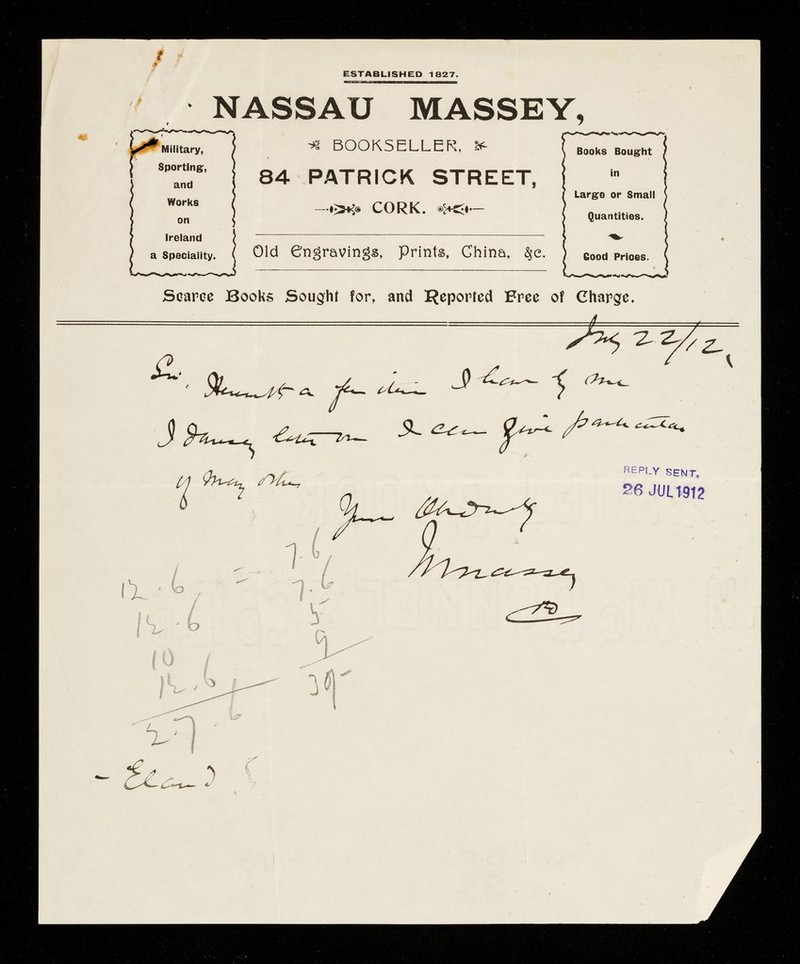 ESTABLISHED 1827.
NASSAU MASSEY,
BOOKSELLER,
84 PATRICK STREET,
CORK.
Old Engravings, Prints, China, &c.
Military,
Sporting,
and
Works
on
Ireland
a Speciality.
Books Bought
in
Large or Small
Quantities.
Good Prices.
Scarce Books Sought for, and Reported Free of Charge.
July 22/12,
Sir, Herewith a few items I have by me
I later on I can give particulars
of many others
REPLY SENT.
26 JUL 1912
Yours Obediently
NMassey
12.6 = 7.6
12.6 7.6
10 5
12.6 9
2.7.6